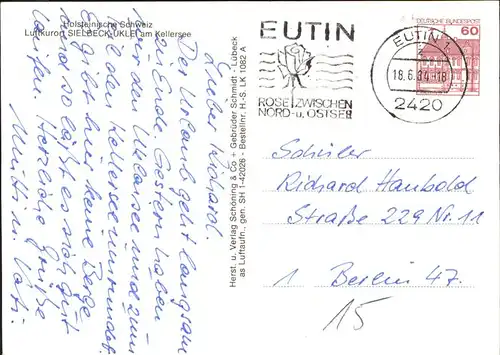 Holsteinische Schweiz
Luftkurort SIELBECK-UKLEI am Kellersee
Lieber Richard.
Der Urlaub geht langsam
zu Ende. Gestern haben
wir den Ukleisee und zum
Teil den Kellersee umrundet.
Es gibt hier keine Berge
und so läßt es sich gut
laufen. Herzliche Grüße
Mutti u. Vati.
Herst. u. Verlag Schöning & Co + Gebrüder Schmidt - Lübeck
as Luftaufn., gen. SH 1-42026 - Bestellnr. H.-S. LK 1082 A
EUTIN
ROSE ZWISCHEN
NORD- u. OSTSEE
EUTIN 1
18.6.84-18
2420
DEUTSCHE BUNDESPOST
60
Schüler
Richard Haubold
Straße 229 Nr. 11
1 Berlin 47.
15